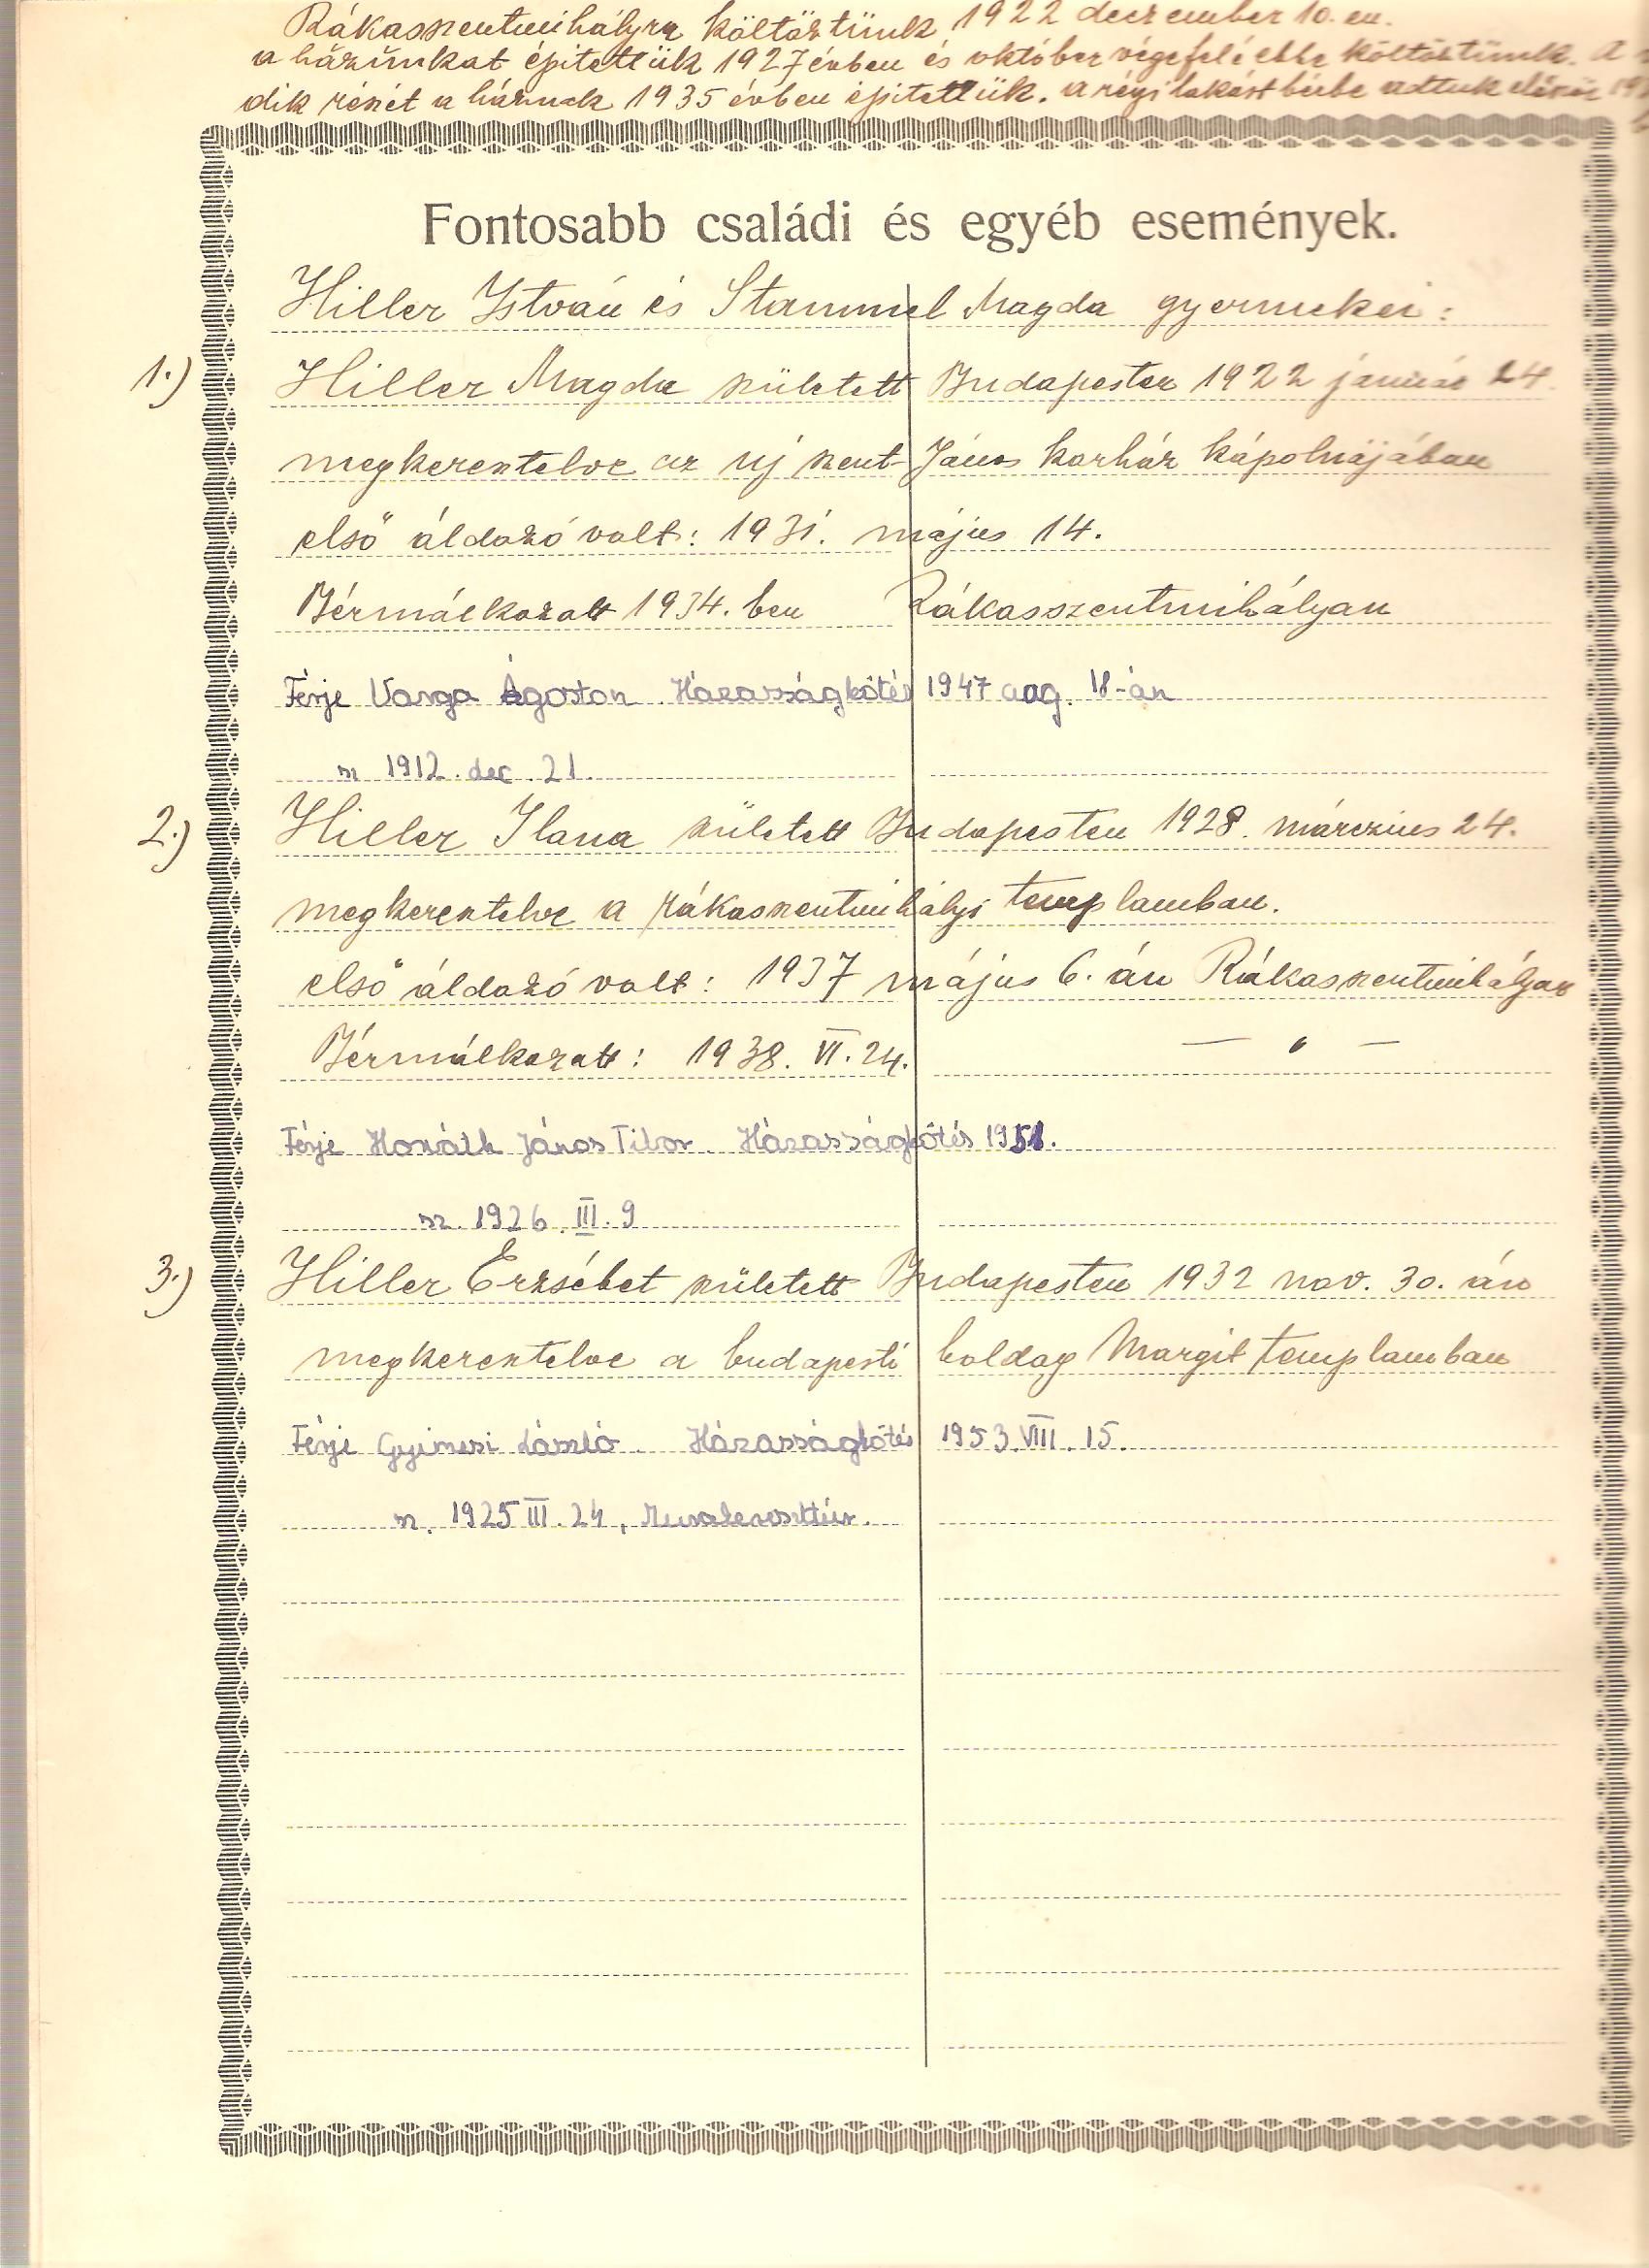 Rákosszentmihályra költöztünk 1922 deczember 10.-en.
a házunkat épitettük 1927 évben és október végefelé ebbe költöztünk. A
dik részét a háznak 1935 évben épitettük. a régi lakást bérbe adtuk először 19
Fontosabb családi és egyéb események.
Hiller István és Stammel Magda gyermekei:
1.) Hiller Magda született Budapesten 1922 január 24
megkeresztelve az új szent-János korház kápolnájában
első áldozó volt: 1931. május 14.
Bérmálkozott 1934.ben Rákosszentmihályon
Férje Varga Ágoston. Házasságkötés 1947 aug. 18-án
sz 1912. dec. 21.
2.) Hiller Ilona született Budapesten 1928. márczius 24.
megkeresztelve a rákosszentmihályi templomban.
első áldozó volt: 1937 május 6.án Rákosszentmihályon
Bérmálkozott: 1938. VI. 24. — " —
Férje Horváth János Tibor. Házasságkötés 1951.
sz. 1926. III. 9
3.) Hiller Erzsébet született Budapesten 1932 nov. 30.án
megkeresztelve a budapesti boldog Margit templomban
Férje Gyimesi László. Házasságkötés 1953. VIII. 15.
sz. 1925 III. 24,